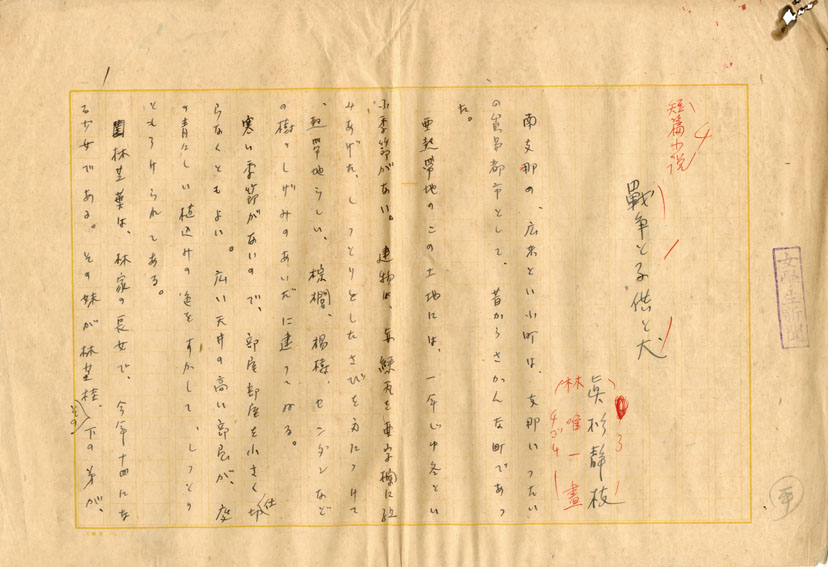 短篇小説
4
戰争と子供と犬
眞杉靜枝
3
(林唯一畫)
南支那の、広東といふ町は、支那いったい
の貿易都市として、昔からさかんな町であっ
た。
亜熱帯地のこの土地には、一年じゅ冬とい
ふ季節がない。建物は、緑瓦を亜字欄に組
みあげた、しっとりとしたさびを身につけて
、熱帯地らしい、棕櫚、楊樹、センダンなど
の樹々しげみのあいだに建ってゐる。
寒い季節がないので、部屋部屋を小さく仕切
らなくともよい。広い天井の高い部屋が、庭
の青々しい植込みの色をすかして、しっとり
ともうけられてある。
林芝華は、林家の長女で、今年十四にな
る少女である。その妹が林芝桂、その下の弟が、
1